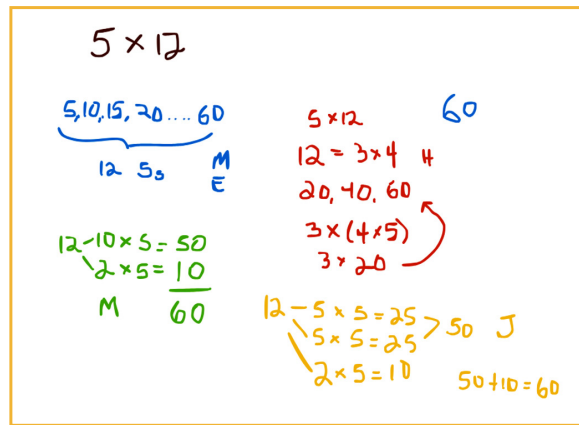 5 × 12
5, 10, 15, 20 .... 60
12 5s
M
E
60
5 × 12
12 = 3 × 4 H
20, 40, 60
3 × (4 × 5)
3 × 20
12 - 10 × 5 = 50
2 × 5 = 10
M 60
12 - 5 × 5 = 25
5 × 5 = 25
50 J
2 × 5 = 10
50 + 10 = 60